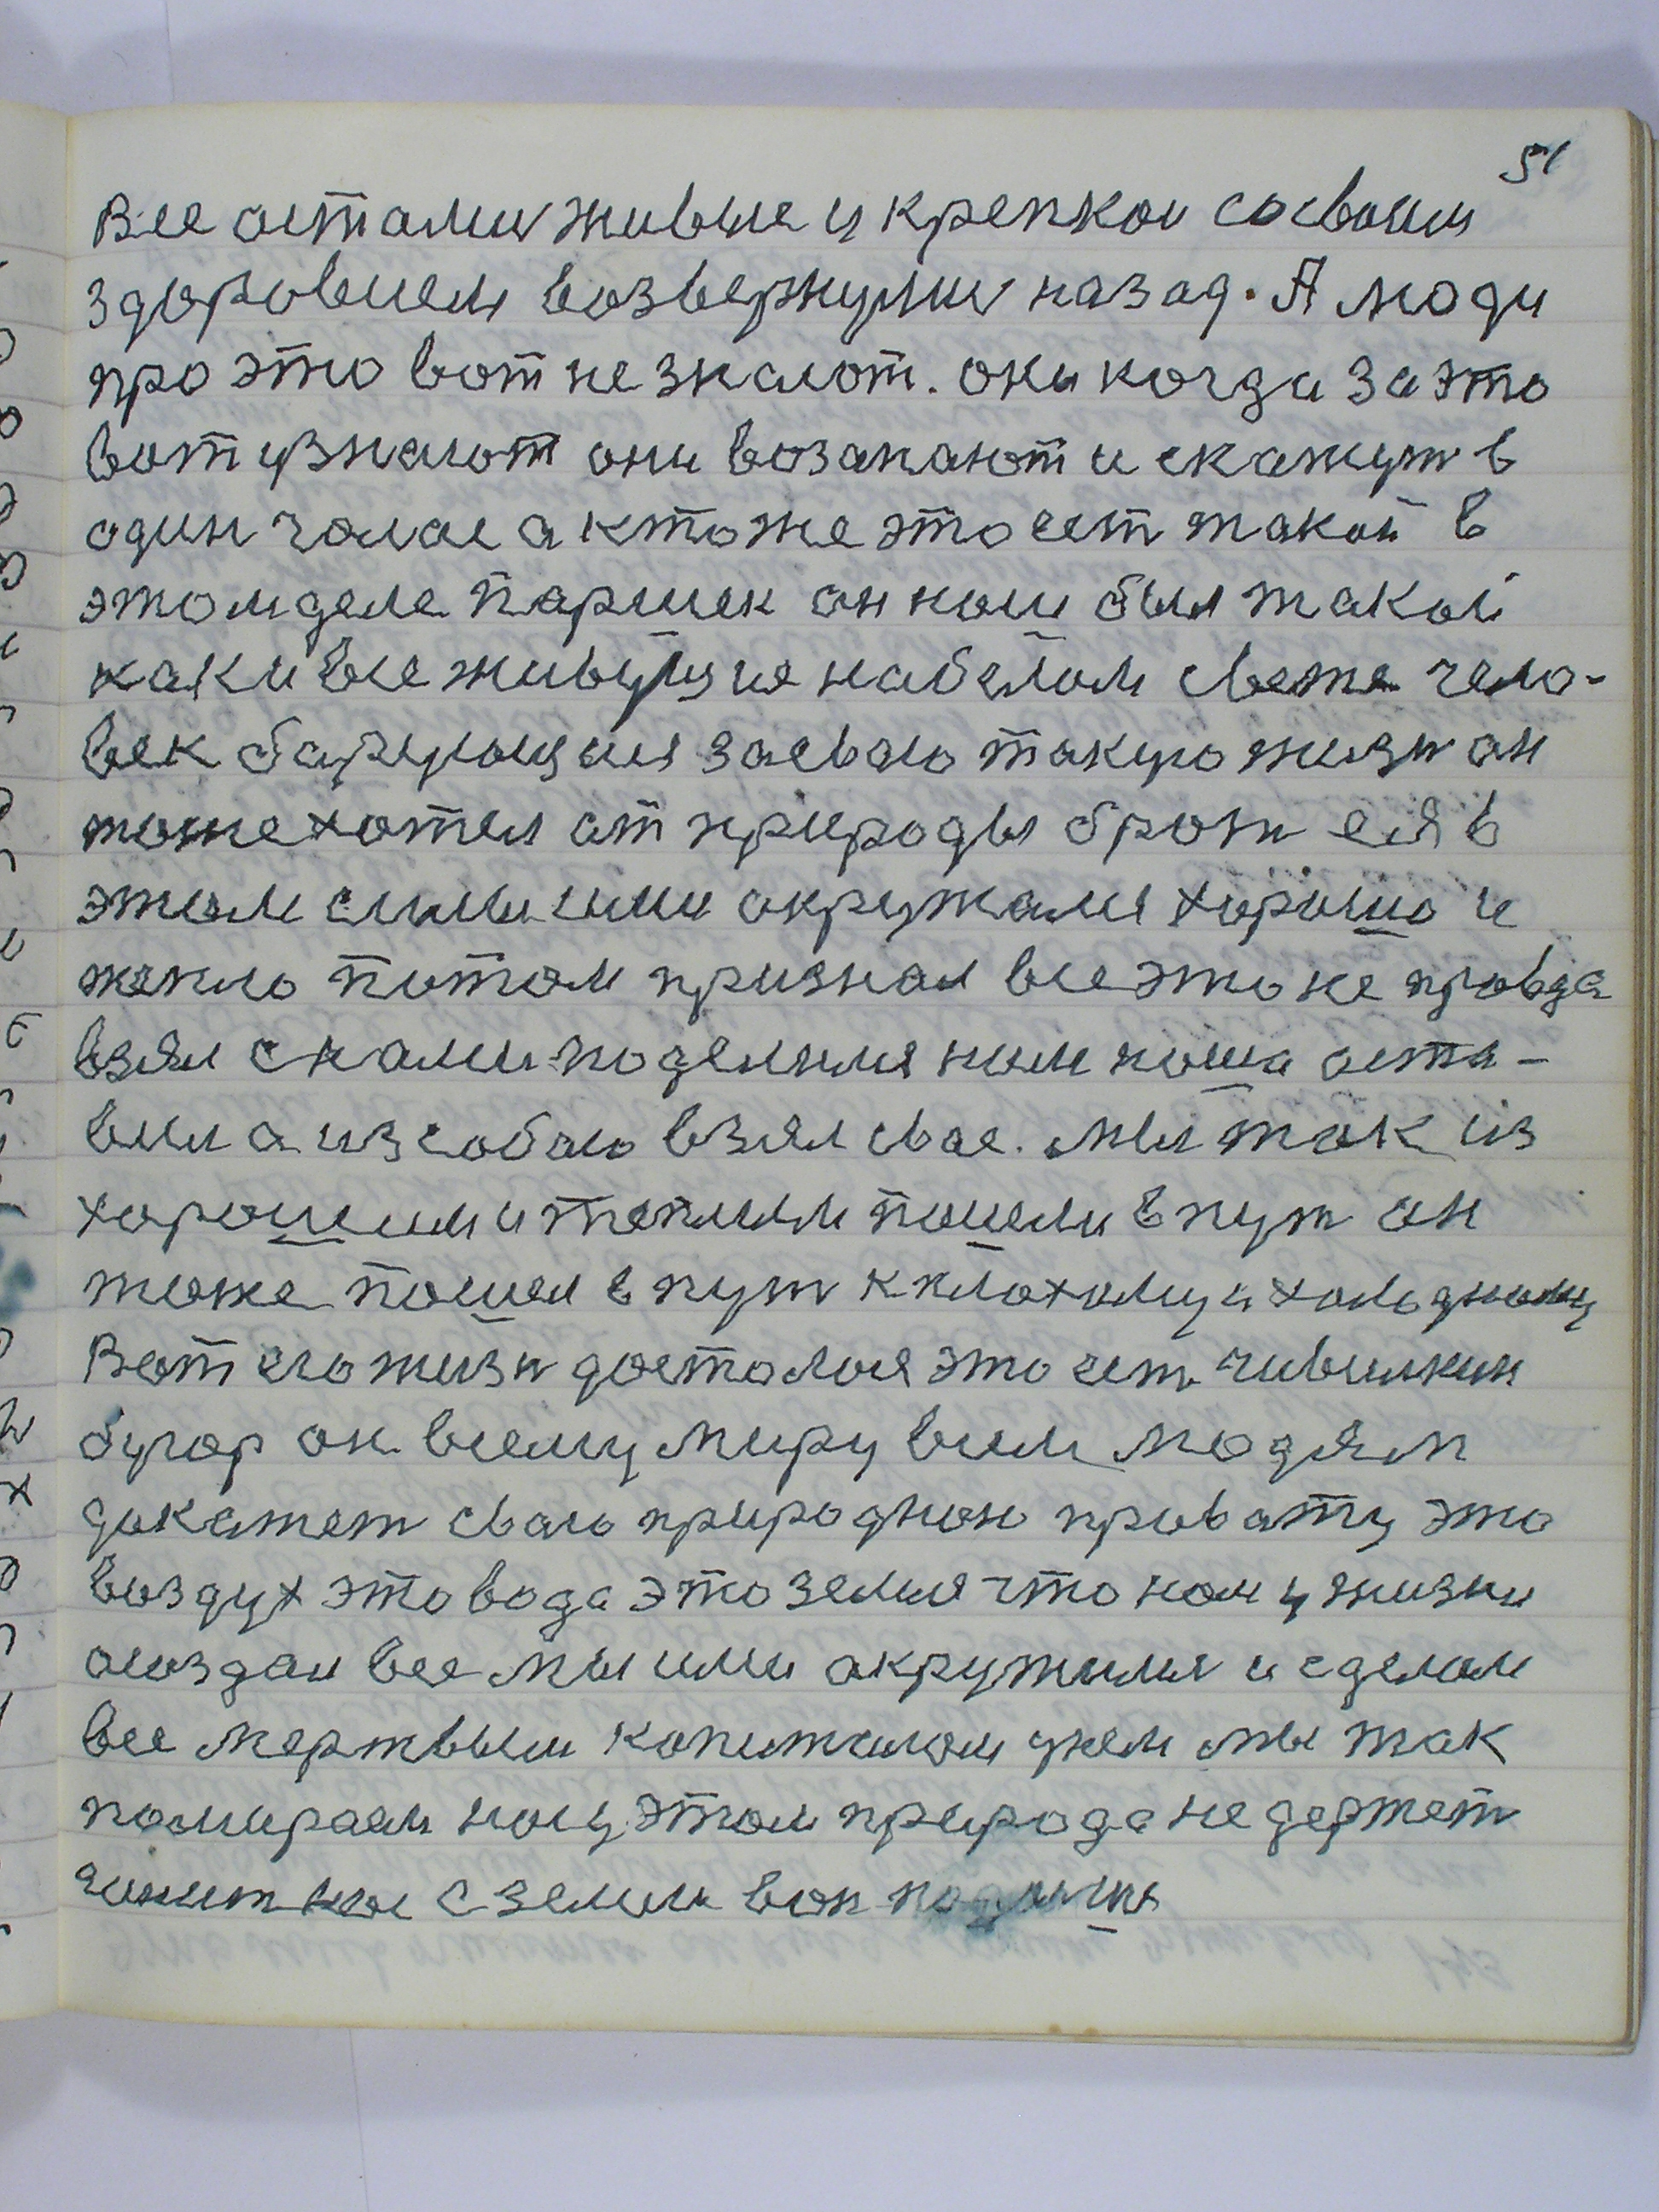 51
Все астались живые и крепкои сосвоим
здоровием возвернулись назад. А люди
про это вот не знают. они когда за это
вот узнают они возапают и скажут в
один голас а кто же это ест такой в
этом деле Паршек он нам был такой
как и все живущия набелом свете чело-
век барующия засваю такую жизн он
тоже хотел от природы брать ея в
этом сними ими окружался хорошо и
тепло потом признал все это не правда
взял снами поделился нам наша оста-
вил а из собою взял свае. мы так из
хорошим и теплым пошли в пут он
тоже пошел в пут к плохому и холодному
Вот его жизн досталося это ест чивилкин
бугор он всему миру всим людям
докажет сваю природнаю правату это
воздух это вода это земля что нам у жизни
создал все мы ими окружилися и сделали
все мертвым капиталом умем мы так
помираем нас у этом природа не держет
гонит нас с земли вон